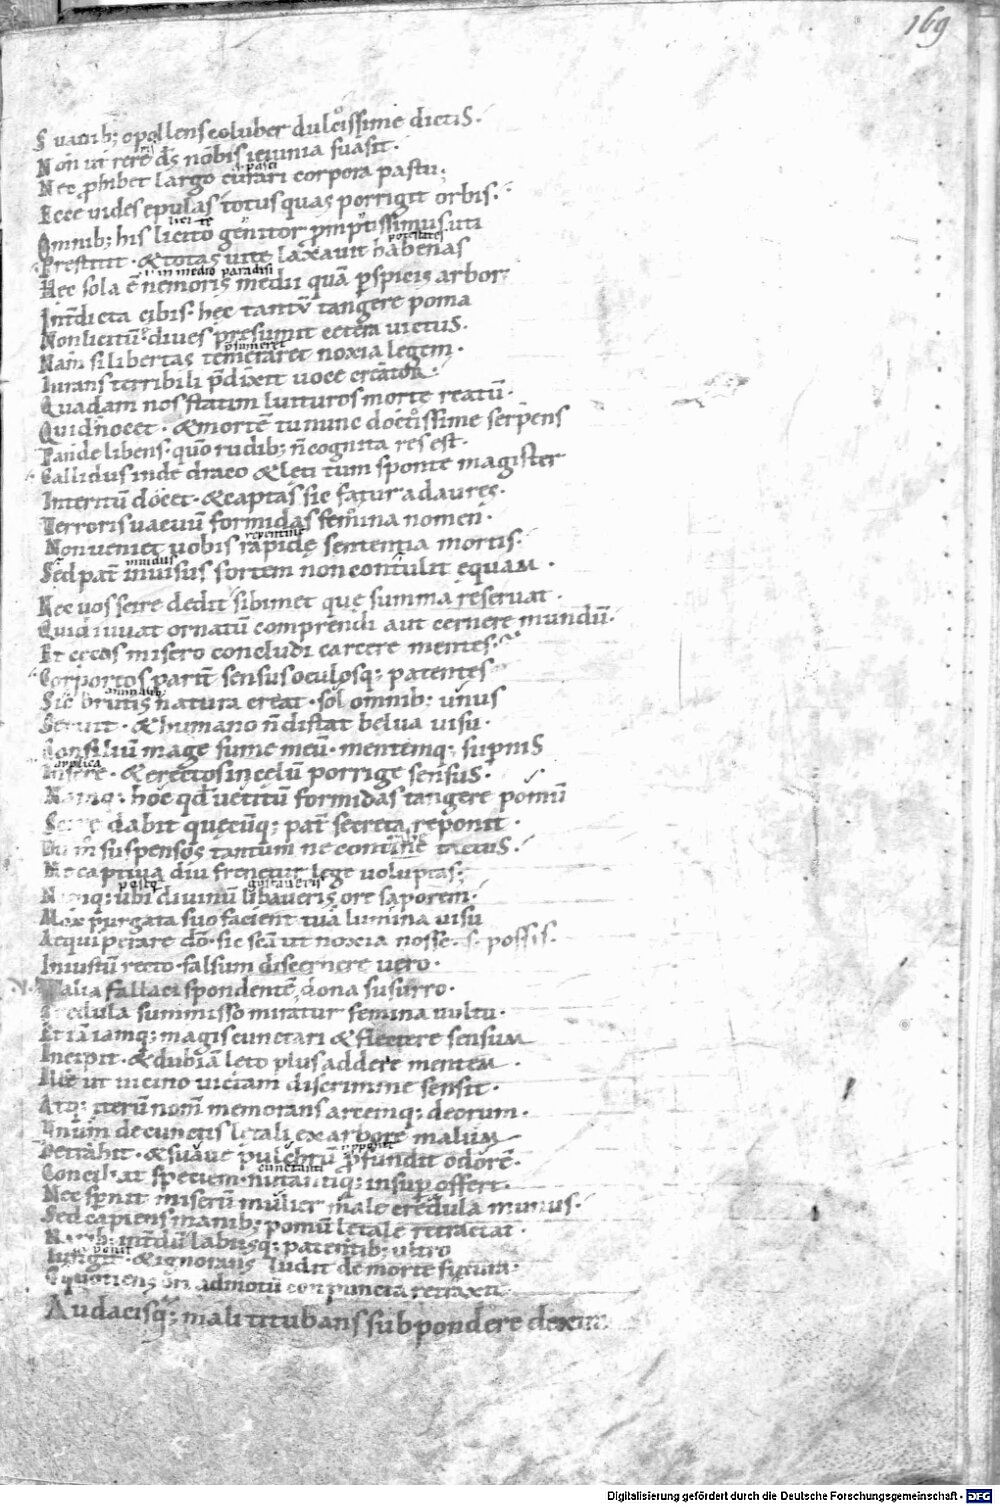 169
Suauib; o pollens coluber dulcissime dictis.
Non ut rere ds nobis ieiunia suasit.
pasci
Nec phibet largo curari corpora pastu.
Ecce uides epulas totus quas porrigit orbis.
Omnib; his licito genitor pmptissimus uti
potestates
Prestitit. & totas uite laxauit habenas
in medio paradisi
Hec sola ē nemoris medii quā pspicis arbor
Int̄dicta cibis. hec tantū tangere poma
Non licitū. dives presumit cetera uictus.
Nam si libertas temeraret noxia legem.
Iurans terribili p̄dixit uoce creator.
Quadam nos statim luituros morte reatū.
Quid n̄ocet. & mortē tu nunc doctissime serpens
Pande libens. quo rudib; n̄ cognita res est.
Callidus inde draco & leti tum sponte magister
Interitū docet. & captas sic fatur ad aures.
Terroris uacuū formidas femina nomen.
repentine
Non ueniet uobis rapide sententia mortis.
inuidus
Sed pat̄ inuisus sortem non contulit equam.
Nec uos scire dedit sibimet que summa reseruat.
Quid iuuat ornatū comprendi aut cernere mundū.
Et cecas misero concludi carcere mentes.
Corporeos parit̄ sensus oculosq; patentes
animalib;
Sic brutis natura creat. sol omnib; unus
Seruit. & humano n̄ distat belua uisu.
Consiliū mage sume meū. mentemq; supnis
applica
Insere. & erectos in celū porrige sensus.
Namq; hoc qd uetitū formidas tangere pomū
Scire dabit quecūq; pat̄ secreta reponit.
suspensos tantum ne contine tactus.
Ne captiua diu frenetur lege uoluptas.
postq gustaueris
Namq; ubi diuinū libaueris ore saporem.
Mox purgata suo facient tua lumina uisu
Aequiperare dō. sic scā ut noxia nosse. s. possis.
Iniustū recto. falsum discernere uero.
Talia fallaci spondentē dona susurro.
Credula summisso miratur femina uultu.
Et iā iamq; magis cunctari & flectere sensum
Incipit. & dubiā leto plus addere mentem.
Ille ut uicino uictam discrimine sensit.
Atq; iterū nom̄ memorans arcemq; deorum.
Vnum de cunctis letali ex arbore malum
Detrahit. & suaue pulchrū pfundit odorē.
cunctanti
Conciliat speciem. nutantiq; insup offert.
Nec spnit miserū mulier male credula munus.
Sed capiens manib; pomū letale retractat.
Narib; int̄dū labiisq; patentib; ultro
Iungit. & ignorans ludit de morte futura.
O quotiens ori admotū conpuncta retraxit.
Audacisq; mali titubans sub pondere dextra
Digitalisierung gefördert durch die Deutsche Forschungsgemeinschaft - DFG